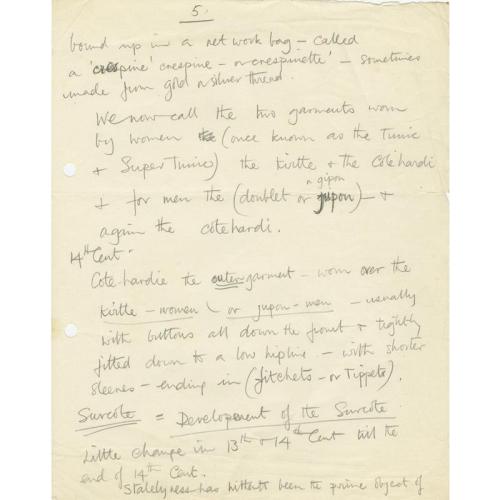 5.
bound up in a net work bag – called
a 'crespine' crespine – or crespinette' – sometimes
made from gold or silver thread.
We now call the two garments worn
by women the (once known as the Tunic
+ Super Tunic) the Kirtle + the Cotehardi
gipon
+ for men the (doublet or jupon) – +
again the cotehardi.
14th Cent.
Cote-hardie the outer garment – worn over the
Kirtle – women \ or jupon – men – usually
with buttons all down the front + tightly
fitted down to a low hipline – with shorter
sleeves – ending in (fitchets – or Tippets).
Surcote = Development of the Surcote
Little change in 13th + 14th Cent till the
end of 14th Cent.
Statelyness has hitherto been the prime object of